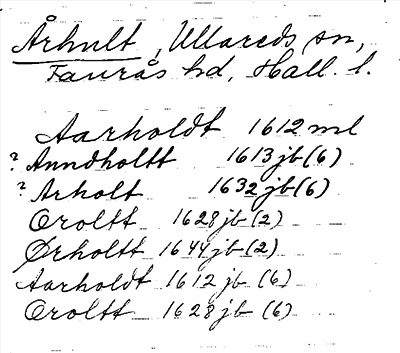 Århult, Ullareds sn,
Faurås hd, Hall. l.
Aarholdt 1612 ml
? Anndholtt 1613 jb (6)
? Arholt 1632 jb (6)
Oroltt 1628 jb (2)
Ørholtt 1644 jb (2)
Aarholdt 1612 jb (6)
Oroltt 1628 jb (6)